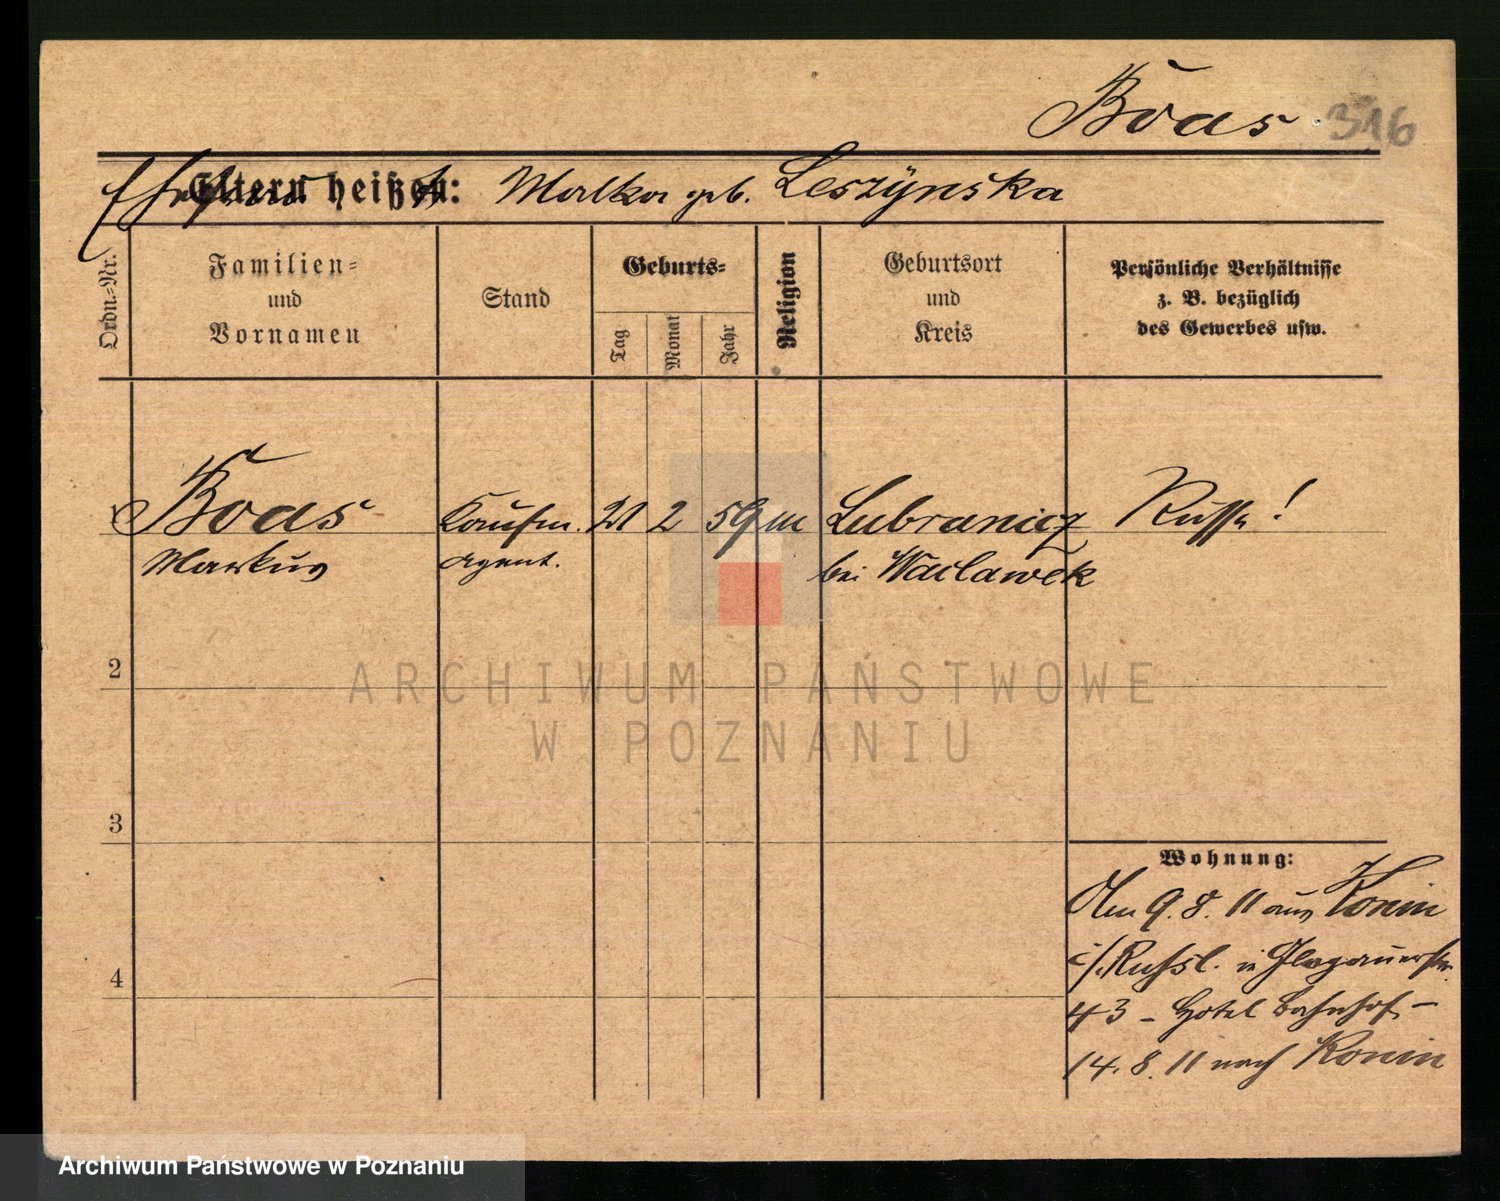 Boas 316
Eltern heißen: Malka geb. Leszÿnska
Ordn.-Nr.
Familien-
und
Vornamen
Stand
Geburts-
Tag
Monat
Jahr
Religion
Geburtsort
und
Kreis
Persönliche Verhältnisse
z. B. bezüglich
des Gewerbes usw.
1 Boas Kaufm. 21 2 59 m Lubranicz Russe!
Markus Agent. bei Waclawek
2
3
4
Wohnung:
Am 9. 8. 11 aus Konin
i/Russl. in Glogauerstr.
43 - Hotel Bahnhof -
14. 8. 11 nach Konin
ARCHIWUM PAŃSTWOWE
W POZNANIU
Archiwum Państwowe w Poznaniu